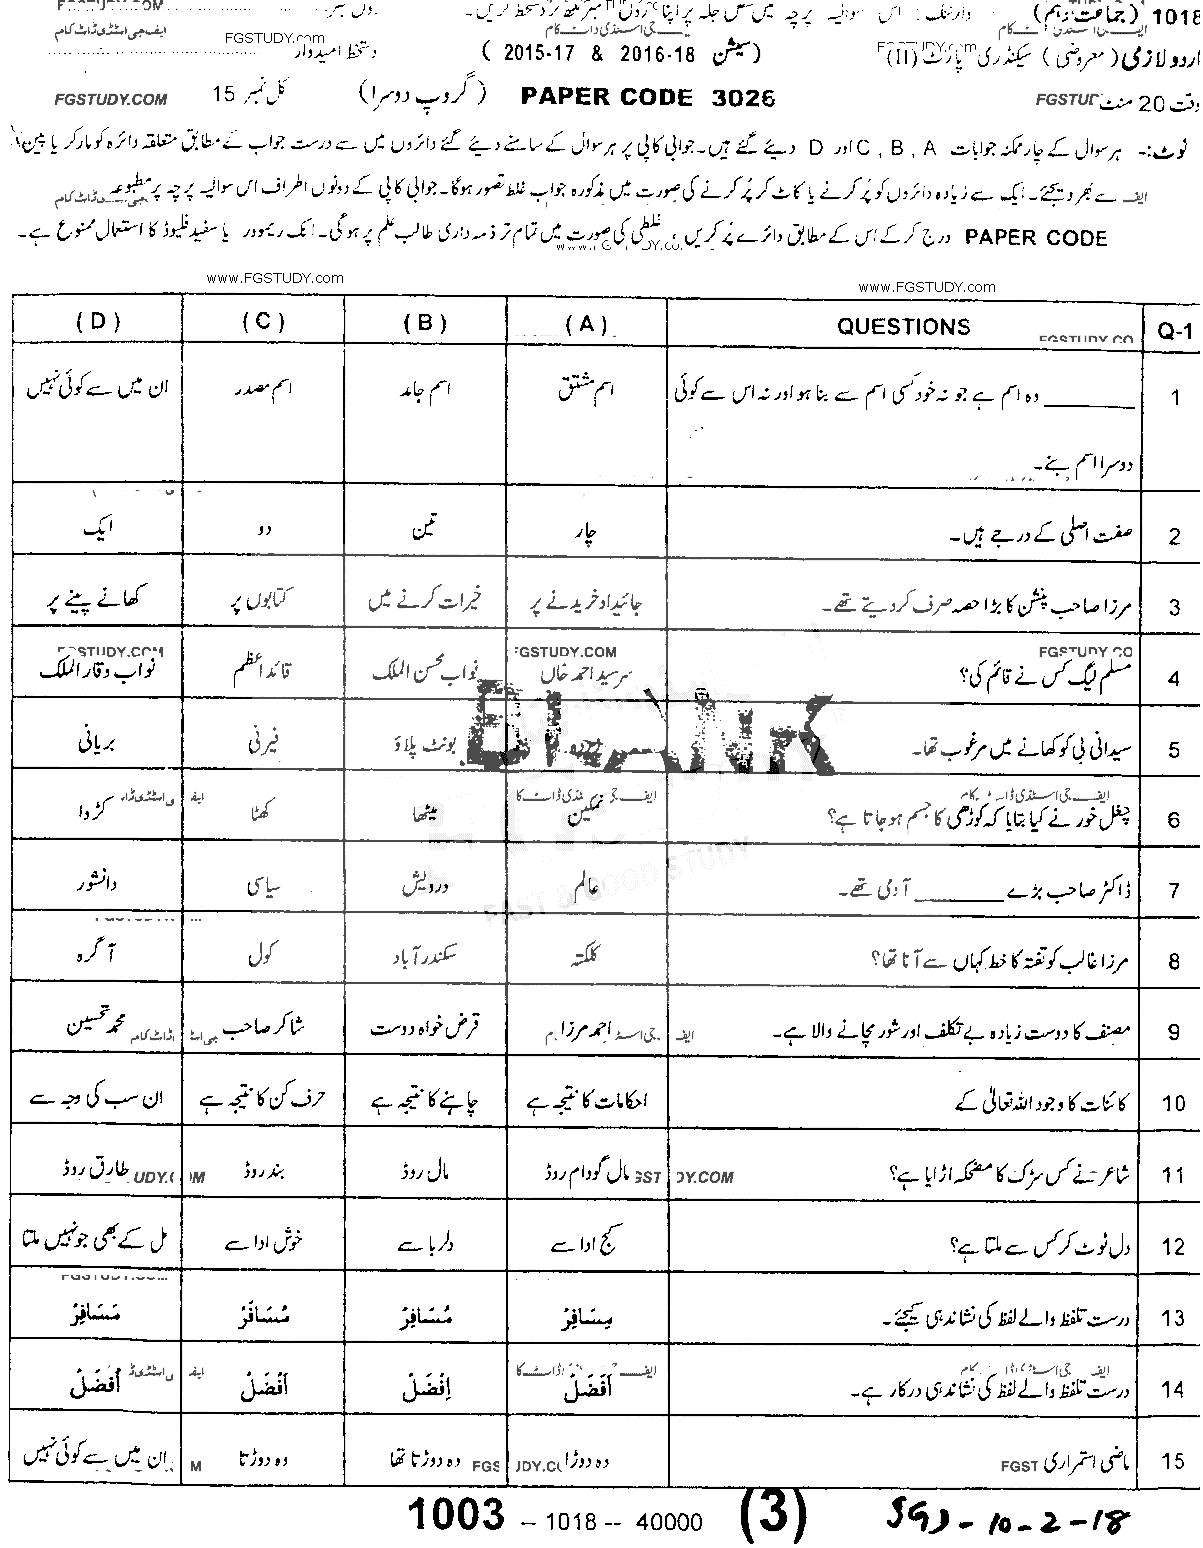 1018 (جماعت دہم)
FGSTUDY.COM
FGSTUDY.com
اردو لازمی (معروضی) سیکنڈری پارٹ (II) (سیشن 2016-18 & 2015-17) دستخط امیدوار
وقت 20 منٹ PAPER CODE 3026 (گروپ دوسرا) کل نمبر 15
FGSTUDY.COM
نوٹ:۔ ہر سوال کے چار ممکنہ جوابات C , B , A اور D دیئے گئے ہیں۔ جوابی کاپی پر ہر سوال کے سامنے دیئے گئے دائروں میں سے درست جواب کے مطابق متعلقہ دائرہ کو مارکر یا پین
سے بھر دیجئے۔ ایک سے زیادہ دائروں کو پُر کرنے یا کاٹ کر پُر کرنے کی صورت میں مذکورہ جواب غلط تصور ہوگا۔ جوابی کاپی کے دونوں اطراف اس سوالیہ پرچہ پر مطبوعہ
PAPER CODE درج کر کے اس کے مطابق دائرے پُر کریں ، غلطی کی صورت میں تمام تر ذمہ داری طالب علم پر ہوگی۔ انک ریموور یا سفید فلیوڈ کا استعمال ممنوع ہے۔
www.FGSTUDY.com
www.FGSTUDY.com
Q-1 QUESTIONS (A) (B) (C) (D)
1 ______ وہ اسم ہے جو نہ خود کسی اسم سے بنا ہو اور نہ اس سے کوئی اسم مشتق اسم جامد اسم مصدر ان میں سے کوئی نہیں
دوسرا اسم بنے۔
2 صفت اصلی کے درجے ہیں۔ چار تین دو ایک
3 مرزا صاحب پنشن کا بڑا حصہ صرف کر دیتے تھے۔ جائیداد خریدنے پر خیرات کرنے میں کتابوں پر کھانے پینے پر
FGSTUDY.COM
4 مسلم لیگ کس نے قائم کی؟ سرسید احمد خاں نواب محسن الملک قائد اعظم نواب وقار الملک
5 سیدانی بی کو کھانے میں مرغوب تھا۔ بونٹ پلاؤ فیرنی بریانی
6 چغل خور نے کیا بتایا کہ کوڑھی کا جسم ہو جاتا ہے؟ نمکین میٹھا کھٹا کڑوا
7 ڈاکٹر صاحب بڑے ______ آدمی تھے۔ عالم درویش سیاسی دانشور
FAST & GOOD STUDY
8 مرزا غالب کو تفتہ کا خط کہاں سے آتا تھا؟ کلکتہ سکندر آباد کول آگرہ
9 مصنف کا دوست زیادہ بے تکلف اور شور مچانے والا ہے۔ احمد مرزا قرض خواہ دوست شاکر صاحب محمد تحسین
10 کائنات کا وجود اللہ تعالیٰ کے احکامات کا نتیجہ ہے چاہنے کا نتیجہ ہے حرف کن کا نتیجہ ہے ان سب کی وجہ سے
11 شاعر نے کس سڑک کا مضحکہ اڑایا ہے؟ مال گودام روڈ مال روڈ بندر روڈ طارق روڈ
12 دل ٹوٹ کر کس سے ملتا ہے؟ کج ادا سے دلربا سے خوش ادا سے مل کے بھی جو نہیں ملتا
13 درست تلفظ والے لفظ کی نشاندہی کیجئے۔ مِسَافِرْ مُسَافِرْ مُسَافَرْ مَسَافِرْ
14 درست تلفظ والے لفظ کی نشاندہی درکار ہے۔ اَفْضَلْ اِفْضَلْ اَفْضَلْ اُفْضَلْ
15 ماضی استمراری وہ دوڑا وہ دوڑتا تھا وہ دوڑتا ان میں سے کوئی نہیں
1003 -- 1018 -- 40000 (3) SGD-10-2-18